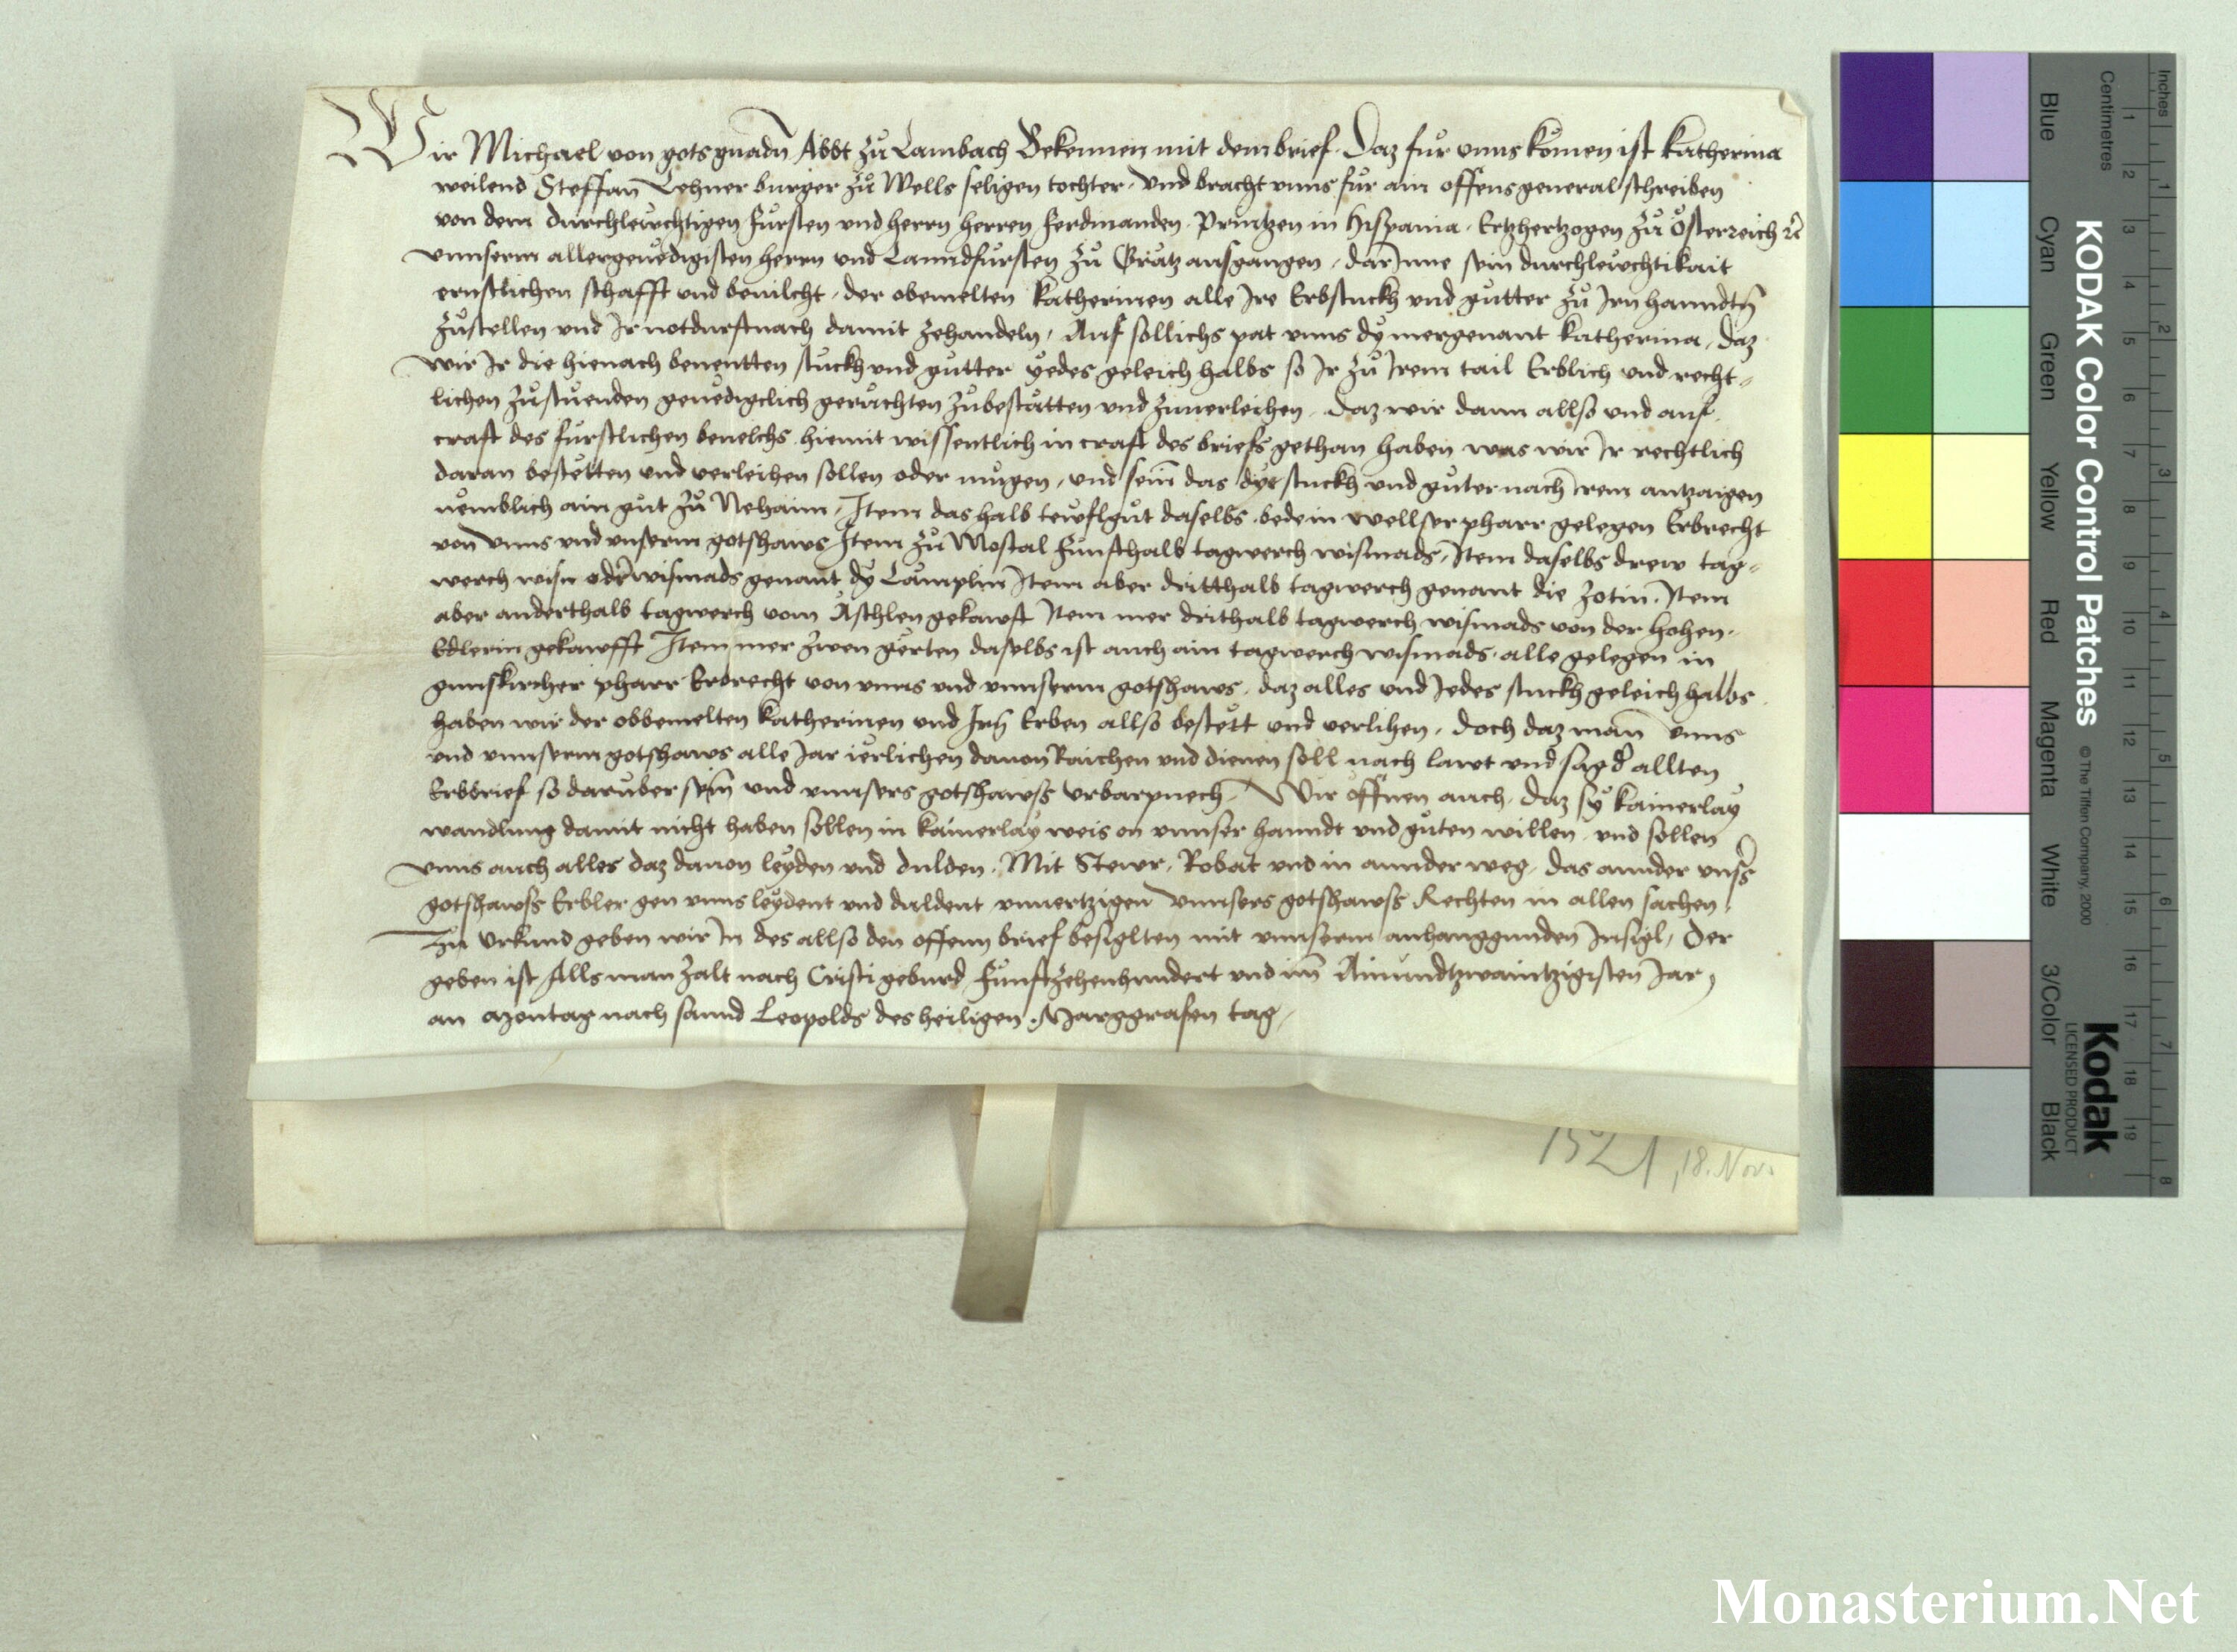 Wir Michael von gots gnadn̄ Abbt zů Lambach Bekennen mit dem brief. Daz fur vnns komen ist Katherina
weilend Steffan Lehner burger zů Wells seligen tochter. Vnd bracht vnns für ain offens general schreiben
von dem durchleuchtigen Fursten vnd herrn herren Ferdinanden. Printzen in Hispania. Ertzhertzogen zů Österreich ꝛc̄
vnnserm allergenedigisten herrn vnd Lanndfursten zů Grätz ausgangen, darInne sein durchleuchtikait
ernstlichen schafft vnd beuilcht, der obemelten Katherinen alle Ire Erbstuckh vnd gutter zů Irn hanndtn̄
zůstellen vnd Ir notdurft nach damit zehandeln, Auf sollichs pat vnns dy mergenant Katherina, daz
wir Ir die hienach benentten stuckh vnd gutter yedes geleich halbs so Ir zů Irem tail Erblich vnd recht-
lichen zůstuenden genedigclich geruchten zubestätten vnd zuuerleihen. daz wir dann allso vnd auf
craft des furstlichen beuelchs hiemit wissentlich in craft des briefs gethan haben was wir Ir rechtlich
daran bestetten vnd verleihen sollen oder mugen, vnd sein̄ das dye stuckh vnd guter nach Irem antzaigen
nemblich ain gut zů Nehaim, Item das halb tewflgut daselbs bede in Wellser pharr gelegen Erbrecht
von vnns vnd vnserm gotshaws Item zů Mostal Funfthalb tagwerch wismads, Item daselbs drew tag-
werch wisn oder wismads genant dy Lämplin Item aber dritthalb tagwerch genant die Zotin. Item
aber anderthalb tagwerch vom Äschlen gekawft Item mer drithalb tagwerch wismads von der Hohen-
Edlerin gekawfft Item mer zwen gerten daselbs ist auch ain tagwerch wismads. alle gelegen in
gunskircher pharr Erbrecht von vnns vnd vnnserm gotshaws. daz alles vnd Iedes stuckh geleich halbs
haben wir der obbemelten Katherinen vnd Irn̄ Erben allso bestett vnd verlihen. doch daz man̄ vnns
vnd vnnserm gotshaws alle Jar ierlichen dauon Raichen vnd dienen soll nach lawt vnd sag d̄ allten
Erbbrief so daruber sein̄ vnd vnnsers gotshawss vrbarpuech. Wir öffnen auch. daz sy kainerlay
wandlung damit nicht haben sollen in kainerlay weis on vnnser hanndt vnd guten willen. vnd sollen
vnns auch alles daz dauon leyden vnd dulden. Mit Stewr. Robat vnd in annder weg, das annder vns̄s
gotshawss Erbler gen vnns leydent vnd duldent vnuertzigen vnnsers gotshawss Rechten in allen sachen.
Zu Vrkund geben wir In des allso den offenn brief besiglten mit vnnserm anhanggunden Insigl, Der
geben ist Alls man zalt nach Cristi geburd Funftzehenhundert vnd im̄ Ainundtzwaintzigisten Jar,
an Montag nach sannd Leopolds des heiligen Marggrafen tag,
1521, 18. Nov.
KODAK Color Control Patches © The Tiffen Company, 2000
Kodak
LICENSED PRODUCT
Blue Cyan Green Yellow Red Magenta White 3/Color Black
Inches 1 2 3 4 5 6 7 8
Centimetres 1 2 3 4 5 6 7 8 9 10 11 12 13 14 15 16 17 18 19
Monasterium.Net